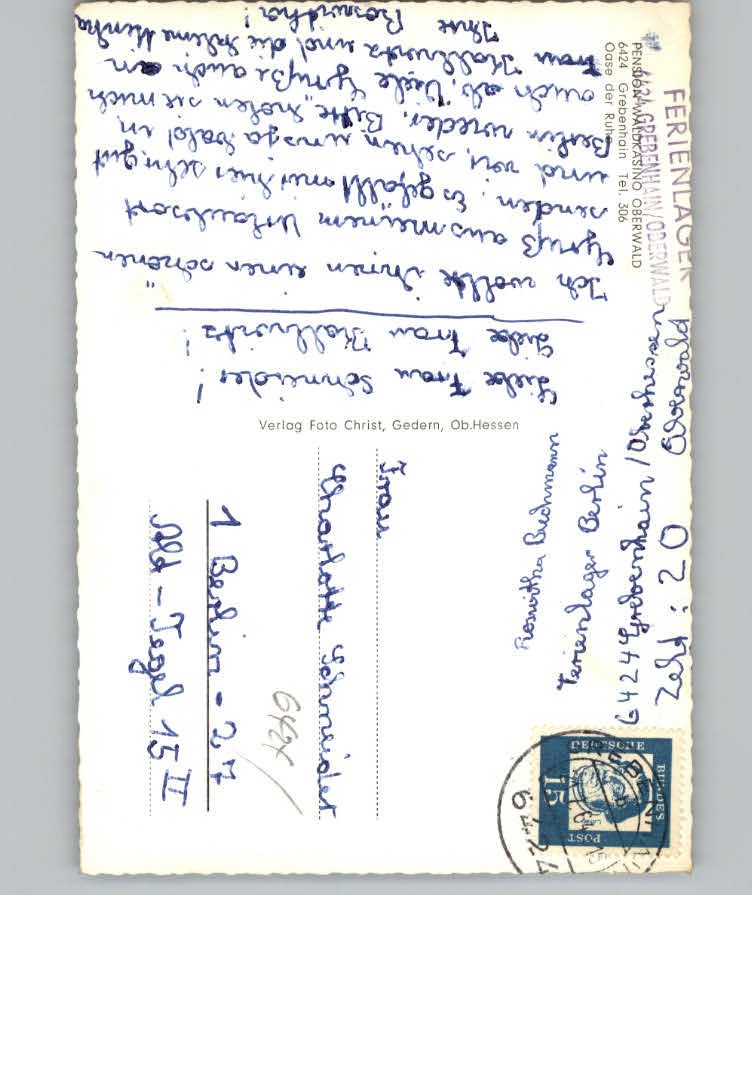 FERIENLAGER
6424 GREBENHAIN/OBERWALD
PENSION WALDKASINO OBERWALD
6424 Grebenhain Tel. 306
Oase der Ruhe
Liebe Frau Schneider!
Liebe Frau Kollwitz!
Ich wollte ihnen einen schönen
Gruß aus meinem Urlaubsort
senden. Es gefällt mir hier sehr gut
und wir sehen uns ja bald in
Berlin wieder. Bitte holen sie mich
auch ab. Viele Grüße auch an
Frau Kollwitz und die kleine
Ihre Roswitha!
Verlag Foto Christ, Gedern, Ob.Hessen
Roswitha Buchmann
Ferienlager Berlin
6424 Grebenhain/Oberhessen
Zelt: 20
DEUTSCHE
BUNDES
POST
15
6424
Frau
Charlotte Schneider
1 Berlin - 27
Alt - Tegel 15 II
6424